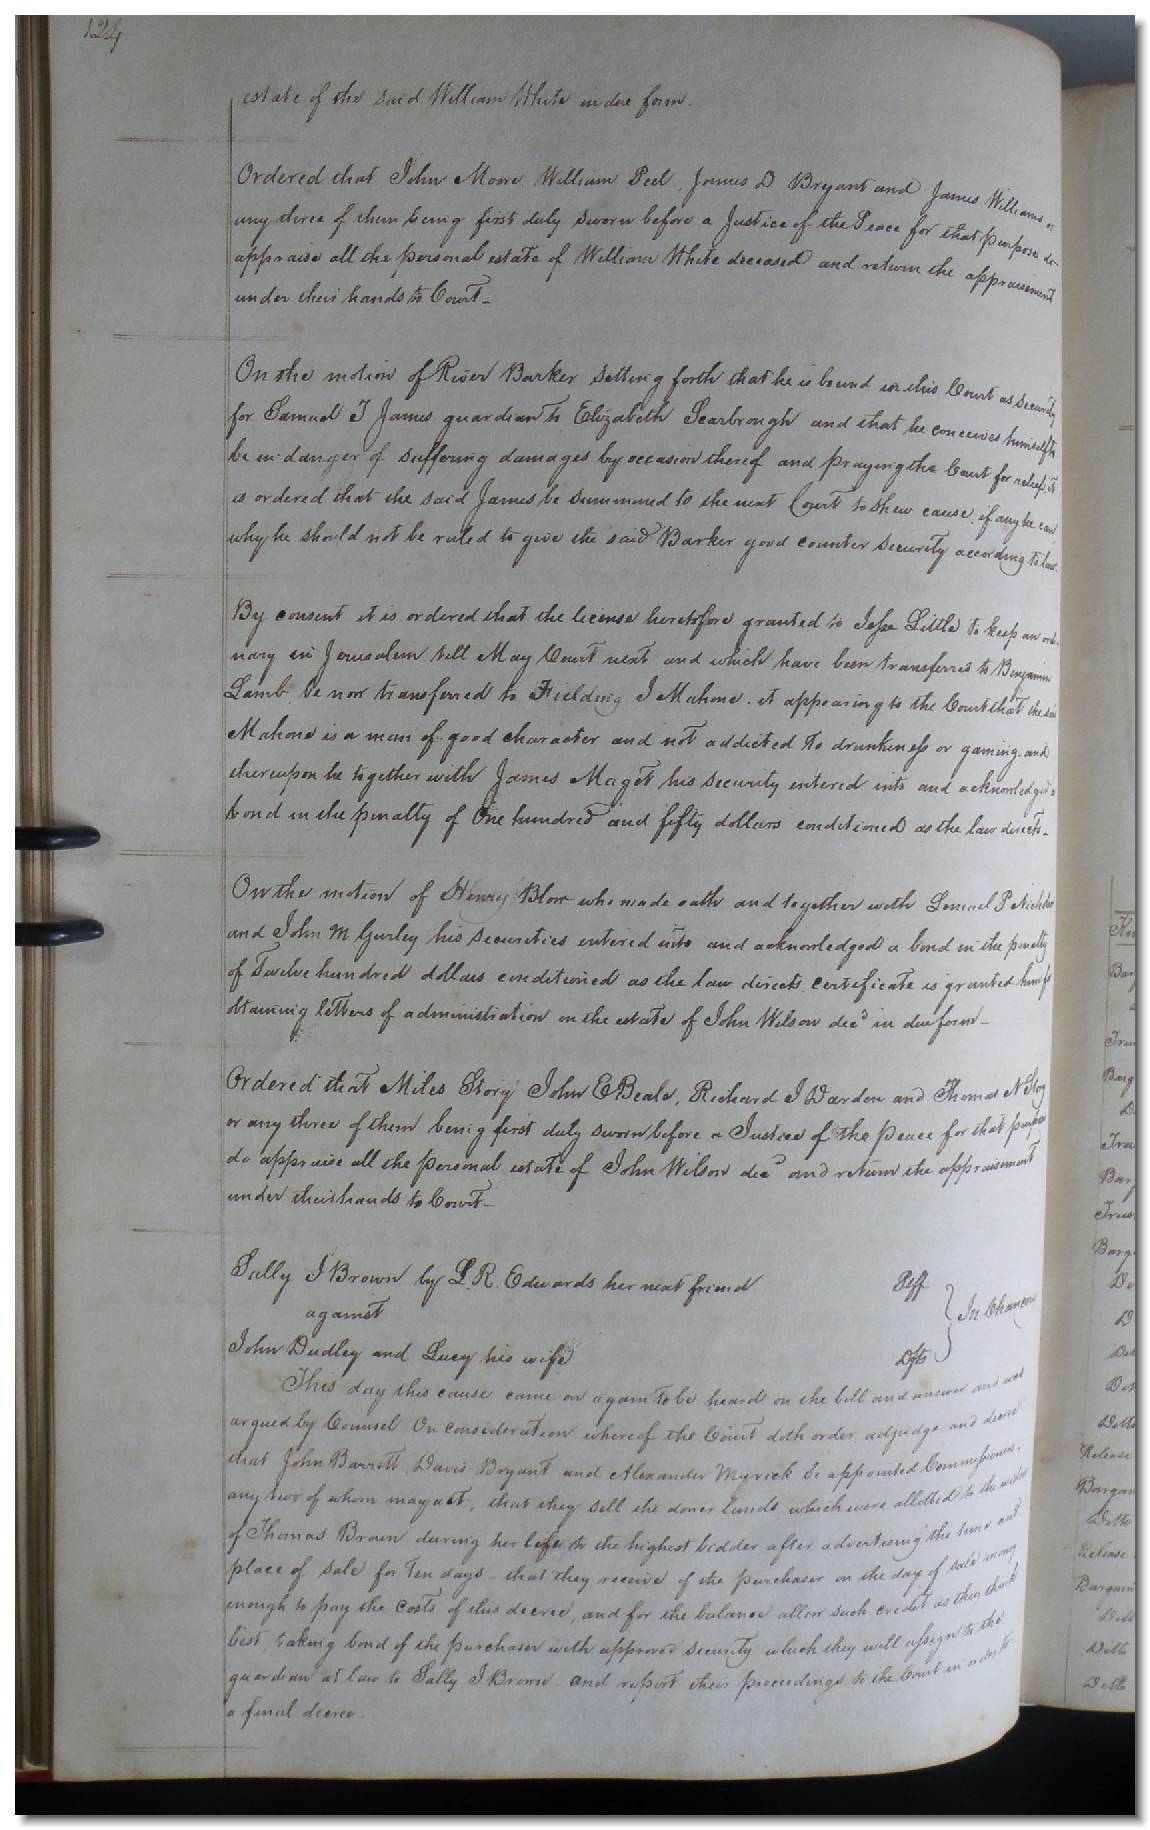 124
estate of the said William White in due form.
Ordered that John Moore, William Peel, James D Bryant and James Williams or
any three of them being first duly sworn before a Justice of the Peace for that purpose do
appraise all the personal estate of William White deceased and return the appraisement
under their hands to Court_
On the motion of River Barker setting forth that he is bound in this Court as security
for Samuel T James guardian to Elizabeth Scarbrough and that he conceives himself to
be in danger of suffering damages by occasion thereof and praying the Court for relief it
is ordered that the said James be summoned to the next Court to shew cause, if any he can
why he should not be ruled to give the said Barker good counter security according to law.
By consent it is ordered that the license heretofore granted to Jesse Little to keep an ordi-
nary in Jerusalem till May Court next and which have been transferred to Benjamin
Lamb be now transferred to Fielding J Mahone. it appearing to the Court that the said
Mahone is a man of good character and not addicted to drunkenness or gaming. and
thereupon he together with James Maget his security entered into and acknowledged a
bond in the penalty of One hundred and fifty dollars conditioned as the law directs_
On the motion of Henry Blow who made oath and together with Lemuel P
and John M Gurley his securities entered into and acknowledged a bond in the penalty
of Twelve hundred dollars conditioned as the law directs, certificate is granted him for
obtaining letters of administration on the estate of John Wilson decd in due form_
Ordered that Miles Story John E Beale, Richard J Darden and Thomas N Story
or any three of them being first duly sworn before a Justice of the peace for that purpose
do appraise all the personal estate of John Wilson decd and return the appraisement
under their hands to Court_
Sally J Brown by L. R. Edwards her next friend Plff
against In Chancery
John Dudley and Lucy his wife Dfts
This day this cause came on again to be heard on the bill and answer and was
argued by Counsel On consideration whereof the Court doth order, adjudge and decree
that John Barrett, Davis Bryant and Alexander Myrick be appointed Commissioners,
any two of whom may act, that they sell the dower lands which were allotted to the widow
of Thomas Brown during her life to the highest bidder after advertising the time and
place of sale for Ten days_ that they receive of the purchaser on the day of sale money
enough to pay the costs of this decree, and for the balance allow such credit as they think
best, taking bond of the purchaser with approved security which they will assign to the
guardian at law to Sally J Brown. and report their proceedings to the Court in order to
a final decree.
Release
Bargain
Ditto
Release
Bargain
Ditto